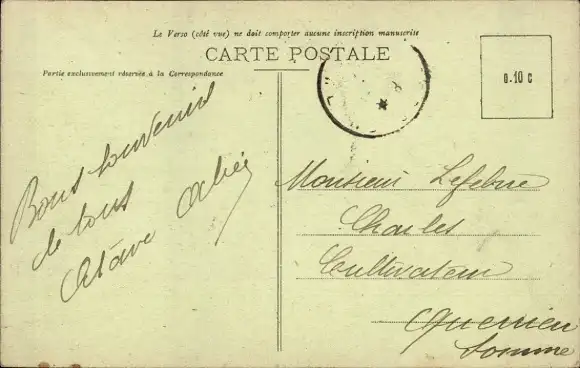 Le Verso (côté vue) ne doit comporter aucune inscription manuscrite
CARTE POSTALE
Partie exclusivement réservée à la Correspondance
0.10 C
Bons souvenirs
de tous
Monsieur Lefebvre
Charles
Cultivateur
Querrieu
Somme